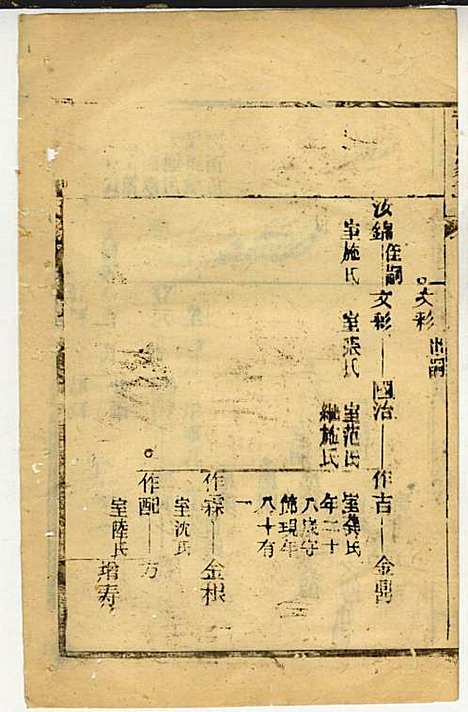 文彩 出嗣
汝錦 侄嗣 文彩 國治 作吉 金
室施氏 室張氏 室范氏 室龔氏
繼施氏 年二十
八歲守
節現年
八十有
一
作霖 金根
室沈氏
作配
室陸氏 增寿